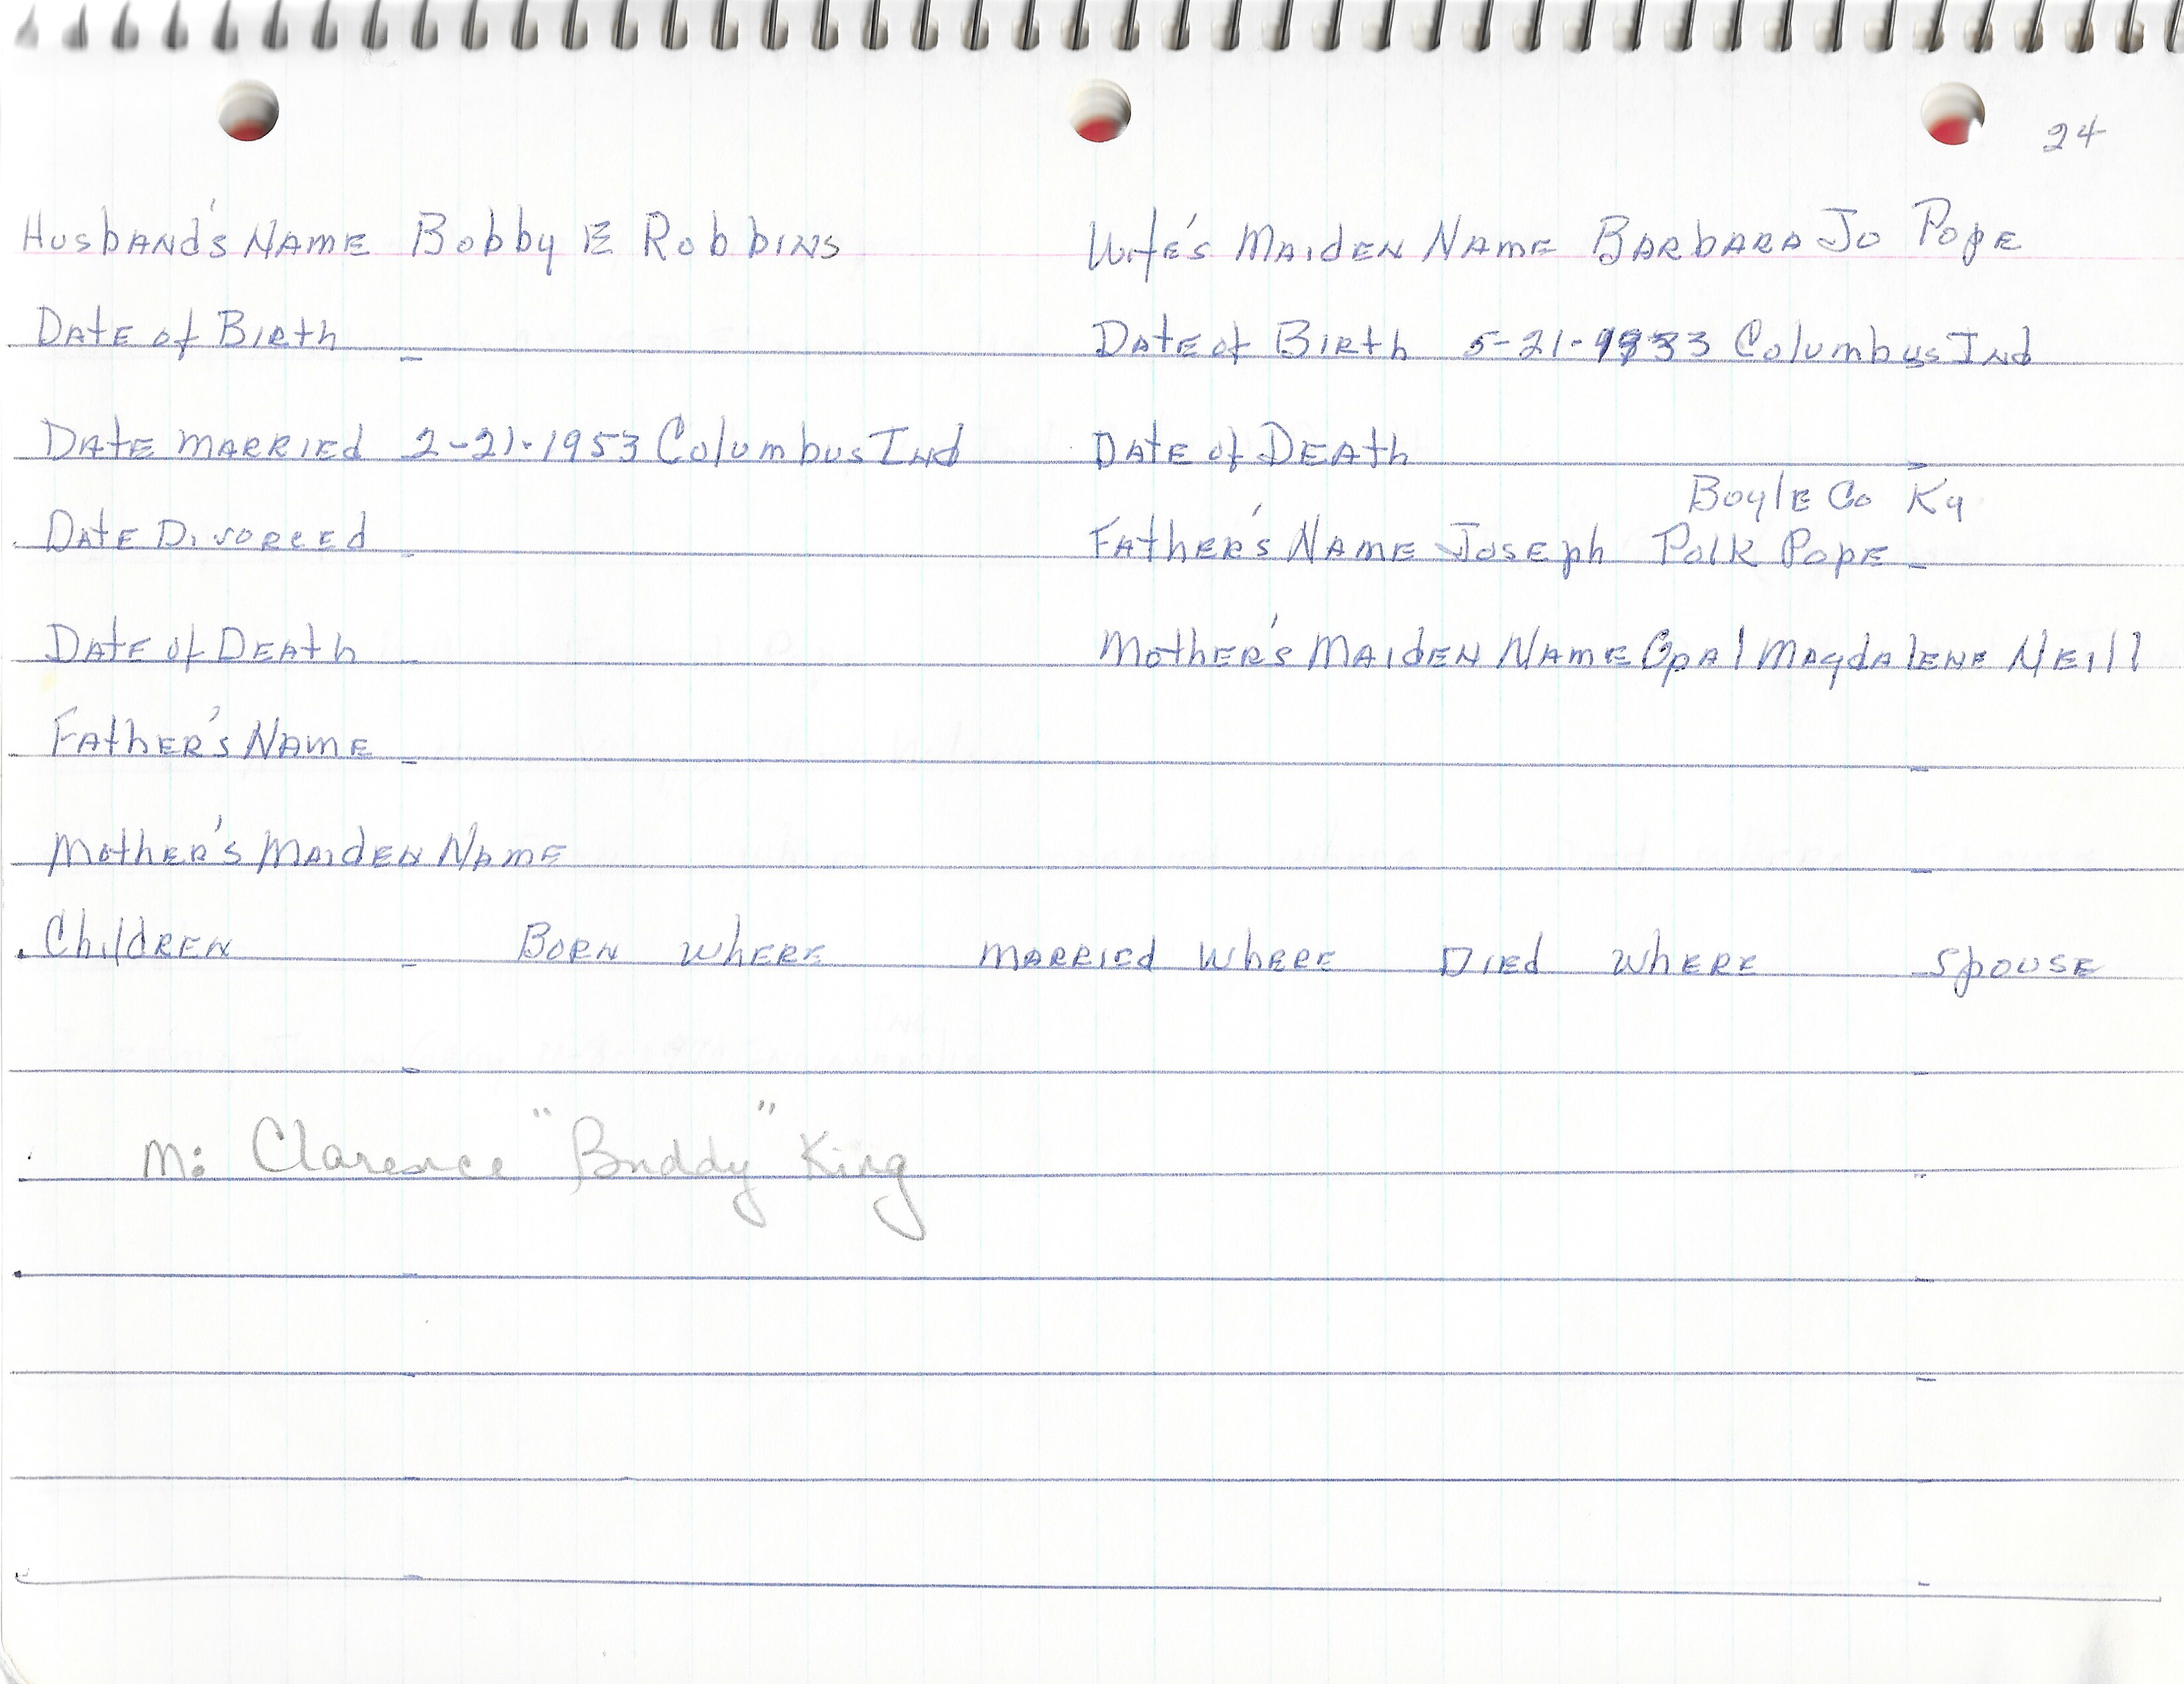 24
Husband's Name Bobby E Robbins
Wife's Maiden Name Barbara Jo Pope
Date of Birth
Date of Birth 5-21-1933 Columbus Ind
Date Married 2-21-1953 Columbus Ind
Date of Death
Date Divorced
Boyle Co Ky
Father's Name Joseph Polk Pope
Date of Death
Mother's Maiden Name Opal Magdalene Neill
Father's Name
Mother's Maiden Name
Children Born Where Married Where Died Where Spouse
M: Clarence "Buddy" King